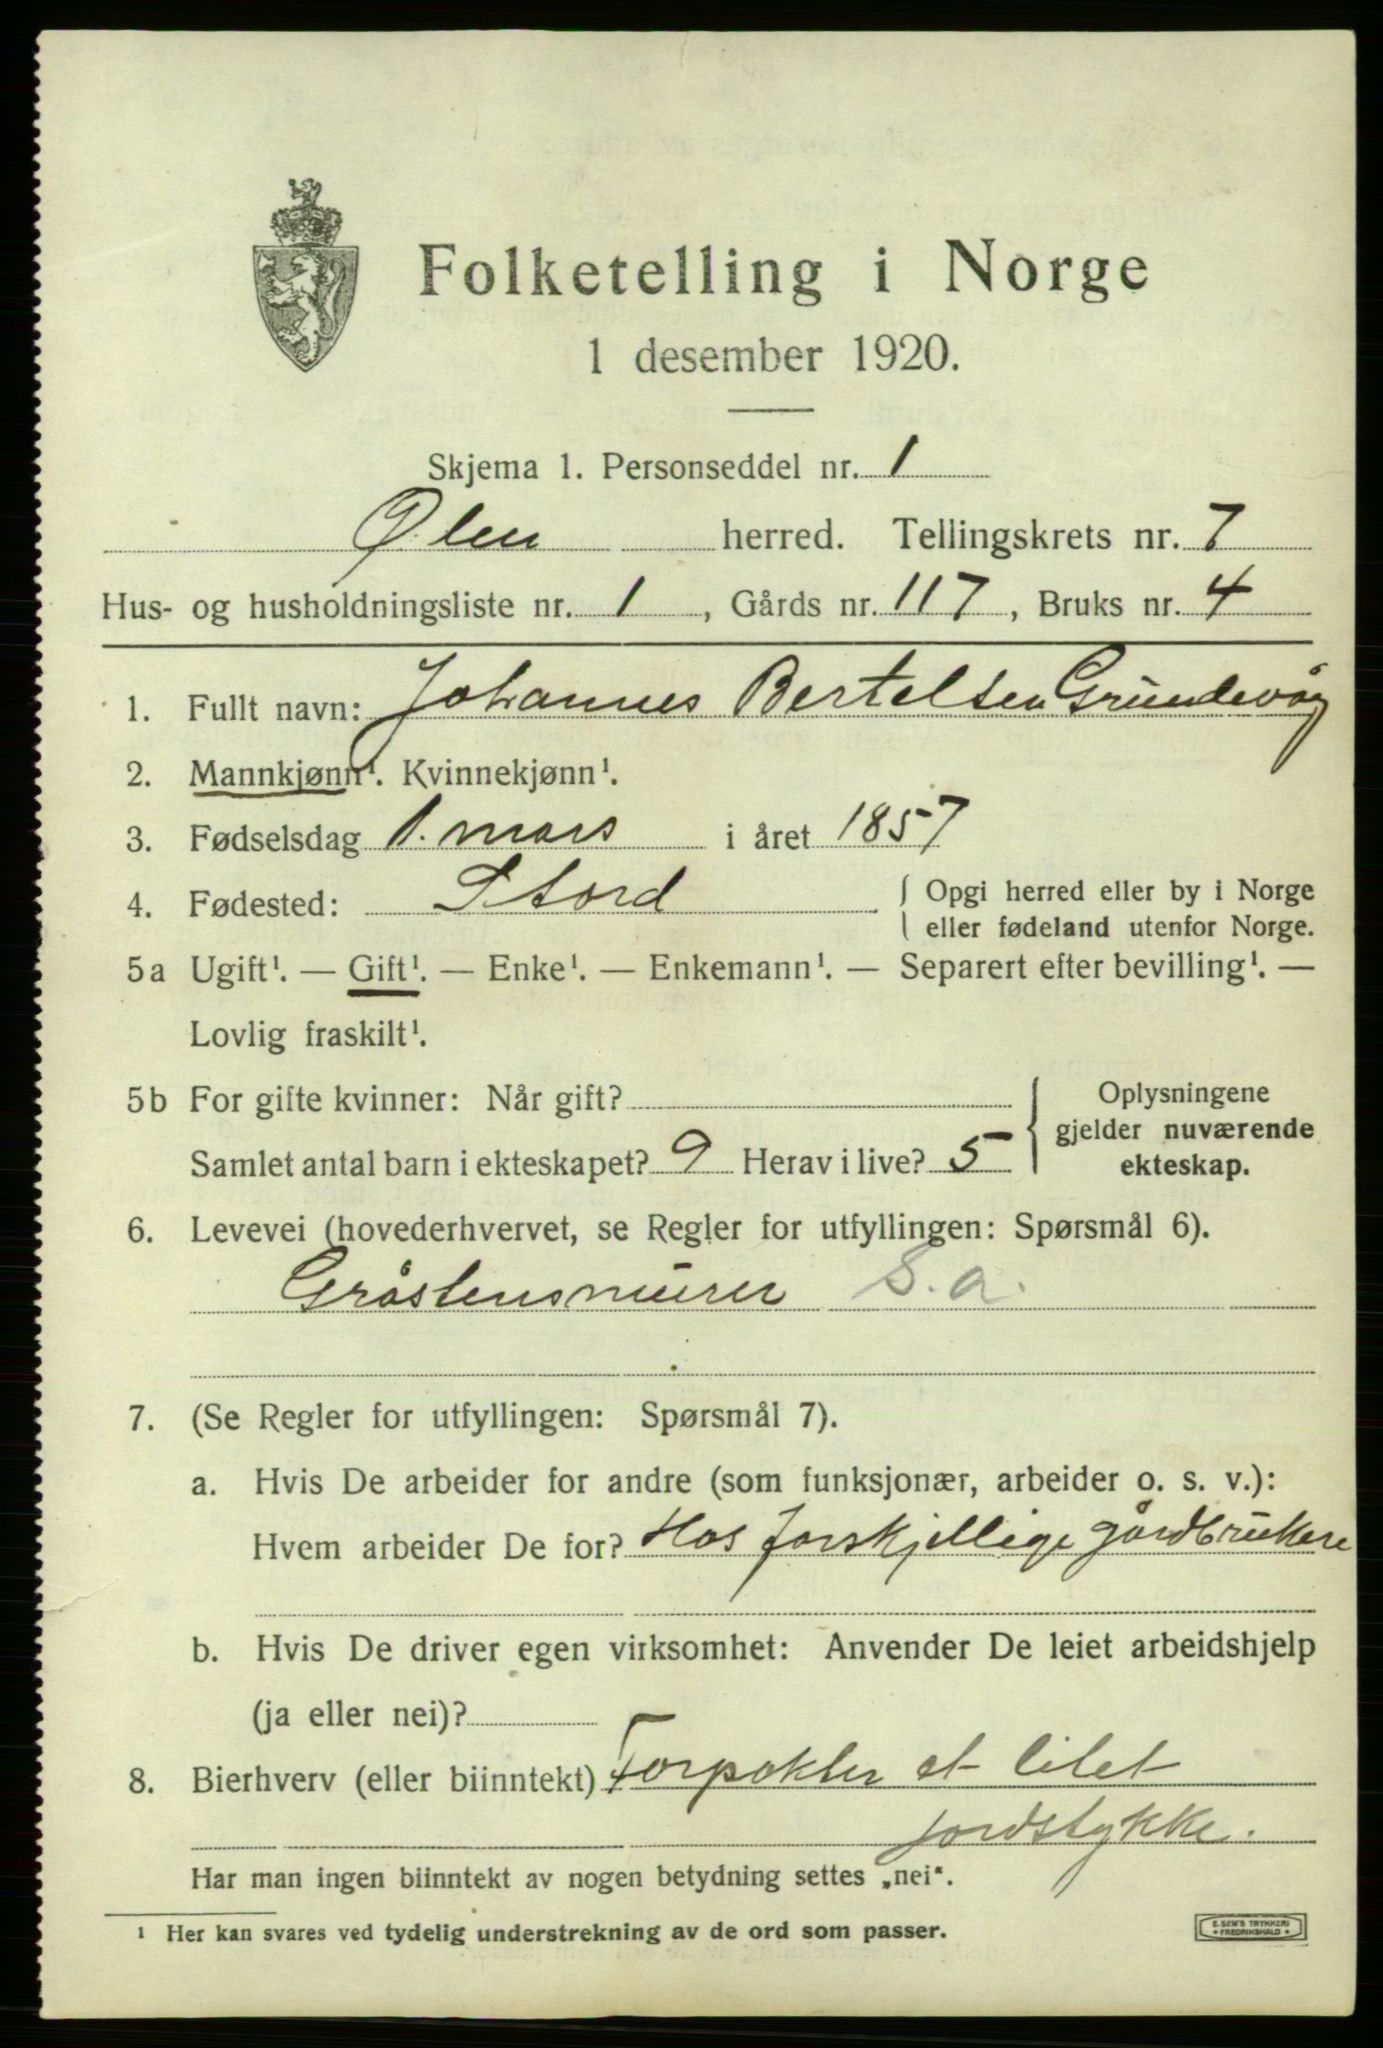 Folketelling i Norge
1 desember 1920.
Skjema 1. Personseddel nr. 1
Ølen herred. Tellingskrets nr. 7
Hus- og husholdningsliste nr. 1, Gårds nr. 117, Bruks nr. 4
1. Fullt navn: Johannes Bertelsen Grundevåg
2. Mannkjønn¹. Kvinnekjønn¹.
3. Fødselsdag 1. mars i året 1857
4. Fødested: Stord { Opgi herred eller by i Norge
eller fødeland utenfor Norge.
5a Ugift¹. — Gift¹. — Enke¹. — Enkemann¹. — Separert efter bevilling¹. —
Lovlig fraskilt¹.
5b For gifte kvinner: Når gift? { Oplysningene
gjelder nuværende
Samlet antal barn i ekteskapet? 9 Herav i live? 5 ekteskap.
6. Levevei (hovederhvervet, se Regler for utfyllingen: Spørsmål 6).
Gråstensmurer S. a.
7. (Se Regler for utfyllingen: Spørsmål 7).
a. Hvis De arbeider for andre (som funksjonær, arbeider o. s. v.):
Hvem arbeider De for? Hos forskjellige gårdbrukere
b. Hvis De driver egen virksomhet: Anvender De leiet arbeidshjelp
(ja eller nei)?
8. Bierhverv (eller biinntekt) Forpakter et litet
jordstykke.
Har man ingen biinntekt av nogen betydning settes „nei“.
¹ Her kan svares ved tydelig understrekning av de ord som passer.
E. SEM'S TRYKKERI
• FREDRIKSHALD •